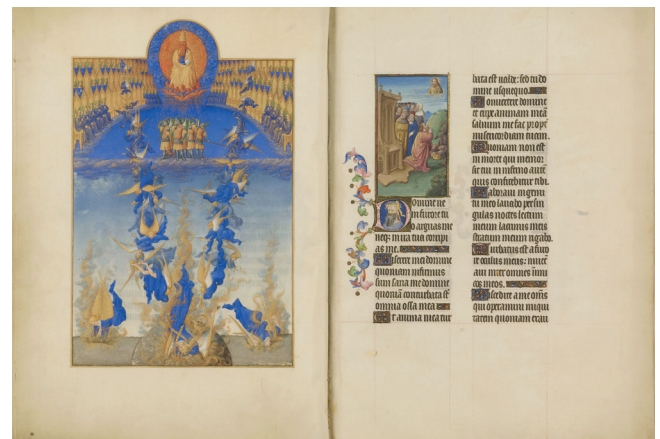 Domine ne
in furore tu
o arguas me
neq; in ira tua corripi
as me.
Miserere mei domine
quoniam infirmus
sum sana me domine
quoniā conturbata sūt
omnia ossa mea
Et anima mea tur
bata est valde: sed tu do
mine usquequo.
Convertere domine
et eripe animam meā
salvum me fac propt
misericordiam tuam.
Quoniam non est
in morte qui memor
sit tui in inferno autē
quis confitebitur tibi.
Laboravi in gemi
tu meo lavabo per sin
gulas noctes lectum
meum lacrimis meis
stratum meum rigabo.
Turbatus est a furo
re oculus meus: inveter
avi inter omnes inimi
cos meos.
Discedite a me oms̄
qui operamini iniqui
tatem quoniam exau